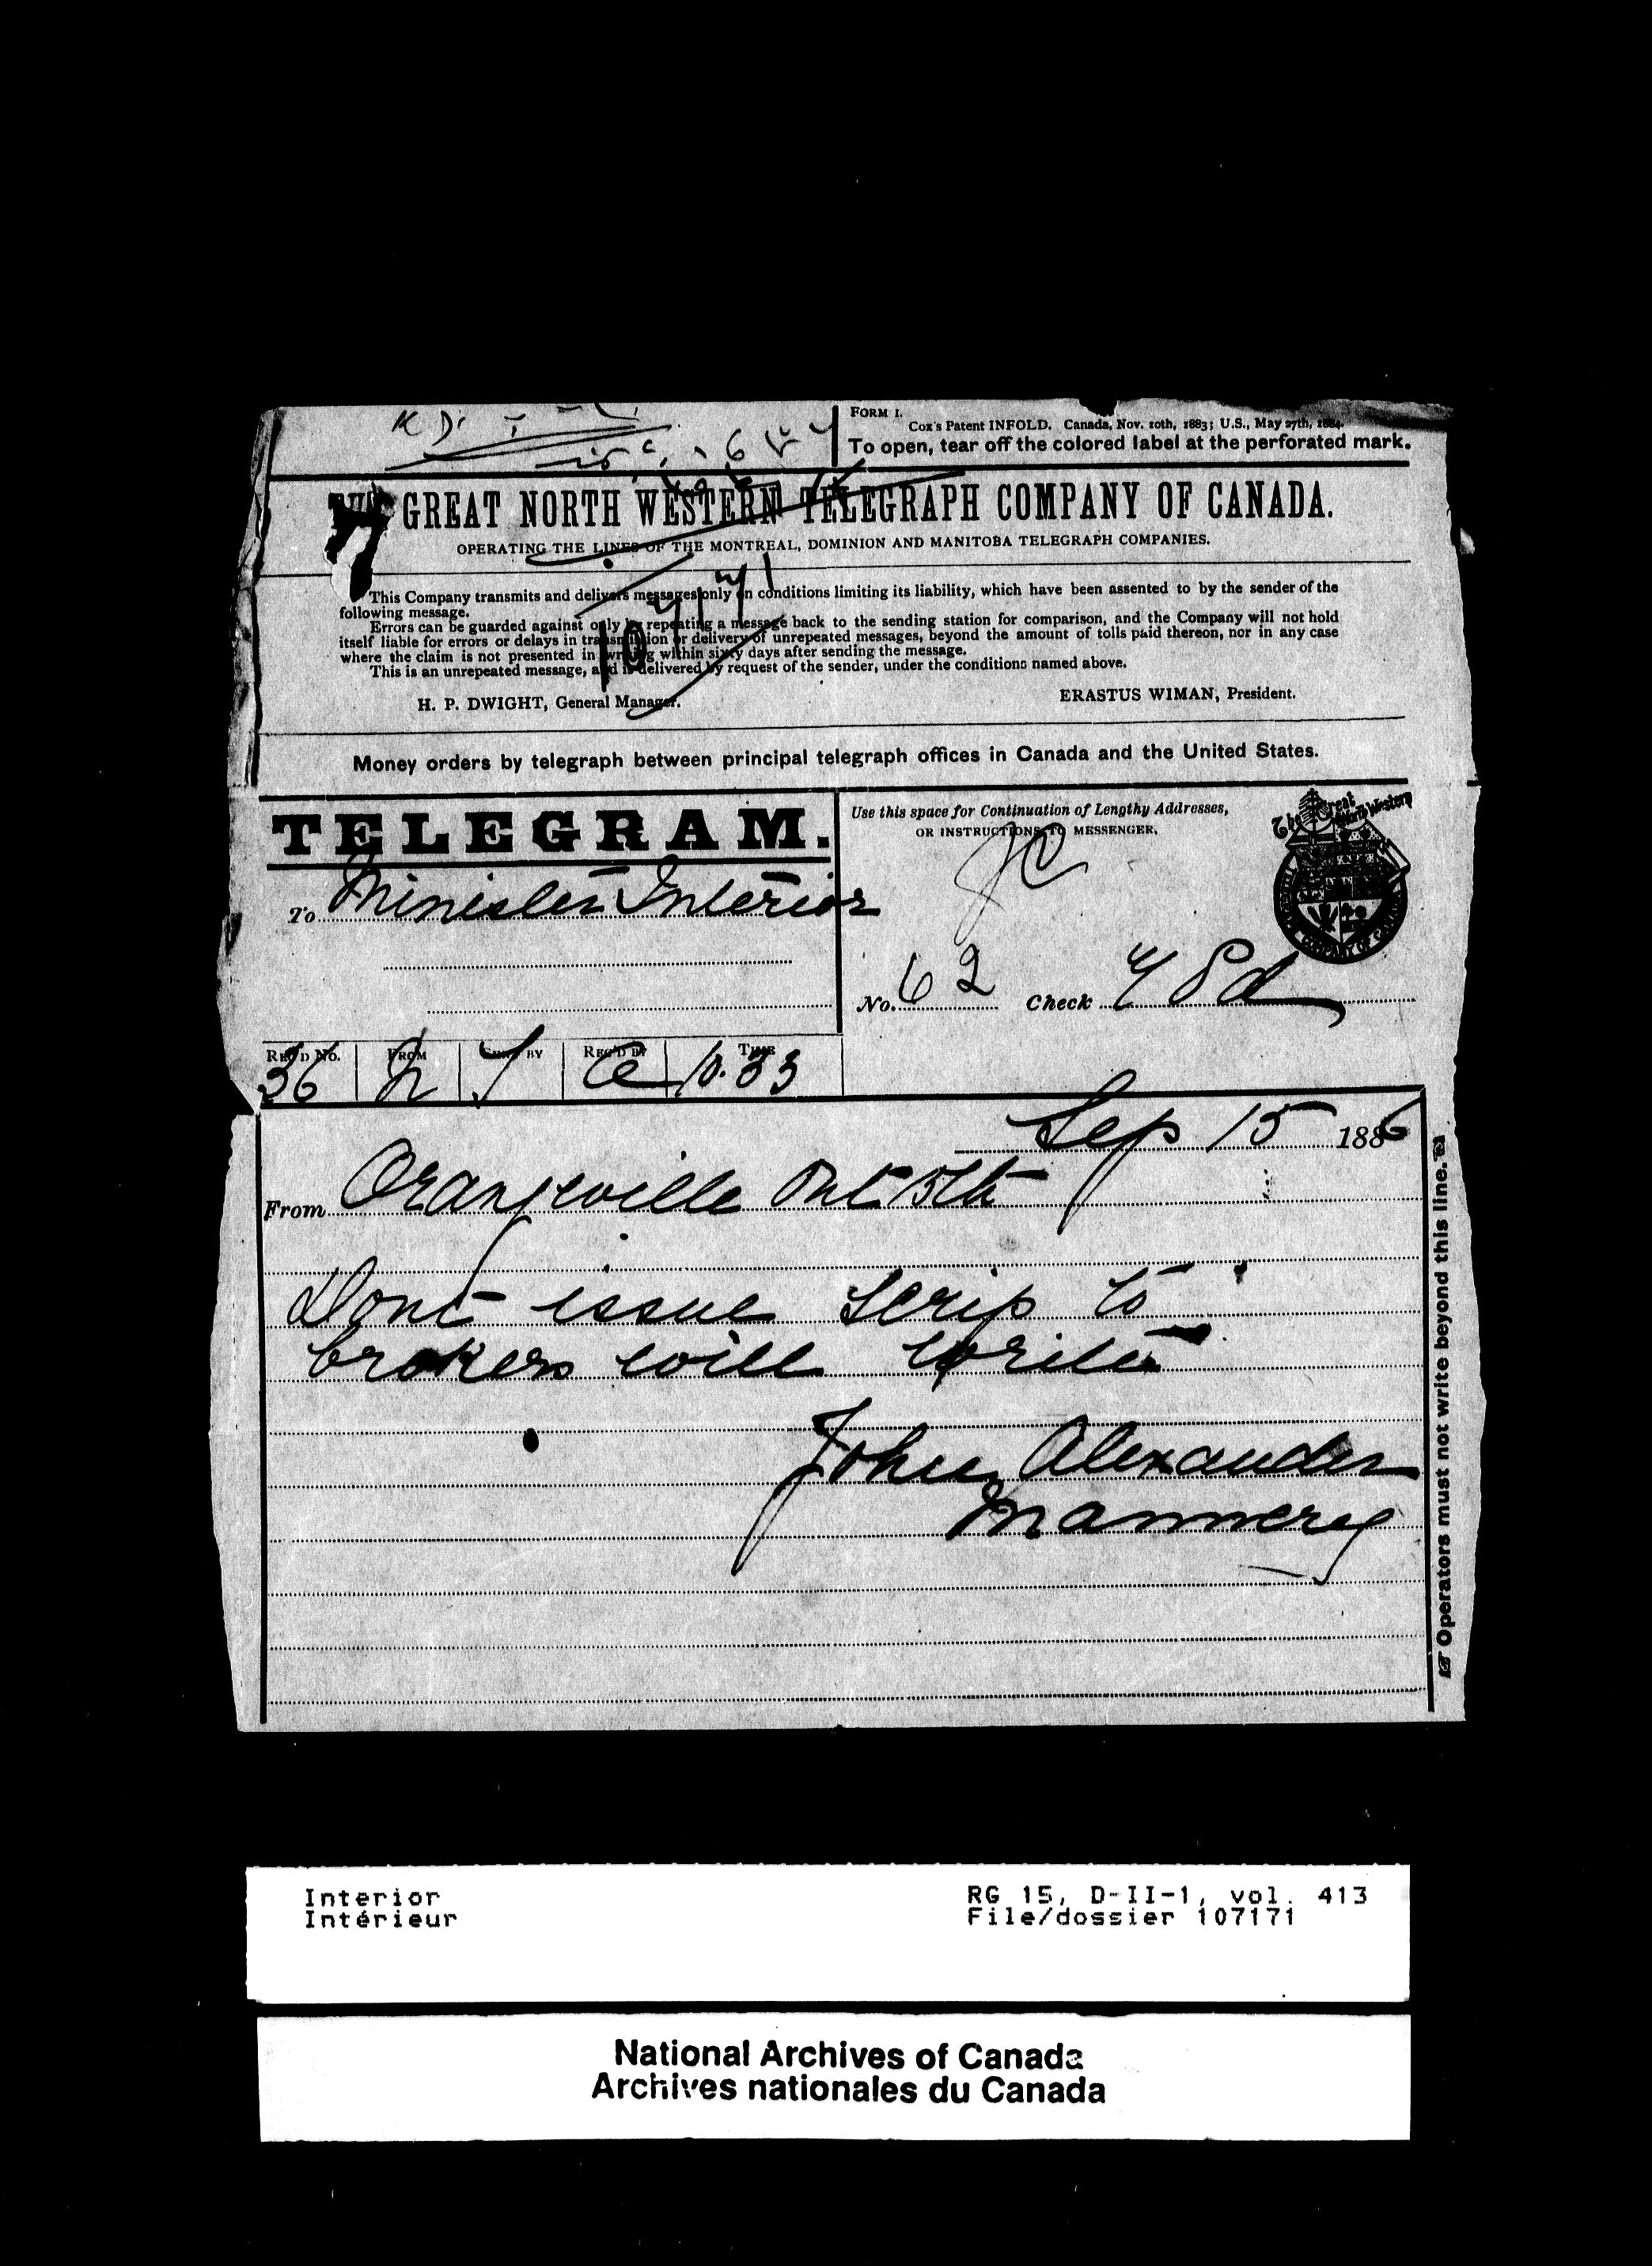 FORM 1.
Cox's Patent INFOLD. Canada, Nov. 10th, 1883; U.S., May 27th, 1884.
To open, tear off the colored label at the perforated mark.
THE GREAT NORTH WESTERN TELEGRAPH COMPANY OF CANADA.
OPERATING THE LINES OF THE MONTREAL, DOMINION AND MANITOBA TELEGRAPH COMPANIES.
This Company transmits and delivers messages only on conditions limiting its liability, which have been assented to by the sender of the
following message.
Errors can be guarded against only by repeating a message back to the sending station for comparison, and the Company will not hold
itself liable for errors or delays in transmission or delivery of unrepeated messages, beyond the amount of tolls paid thereon, nor in any case
where the claim is not presented in writing within sixty days after sending the message.
This is an unrepeated message, and is delivered by request of the sender, under the conditions named above.
H. P. DWIGHT, General Manager.
ERASTUS WIMAN, President.
107171
Money orders by telegraph between principal telegraph offices in Canada and the United States.
TELEGRAM.
Use this space for Continuation of Lengthy Addresses,
OR INSTRUCTIONS TO MESSENGER.
The Great North Western
To Minister Interior
No. 62 Check 7 Pd
REC'D No. FROM SENT BY REC'D BY TIME
36 10.33
Sep 15 1886
From Orangeville Ont 15th
Dont issue scrip to
brokers will write
John Alexander
Mannerey
☞ Operators must not write beyond this line. ☜
Interior
Intérieur
RG 15, D-II-1, vol. 413
File/dossier 107171
National Archives of Canada
Archives nationales du Canada